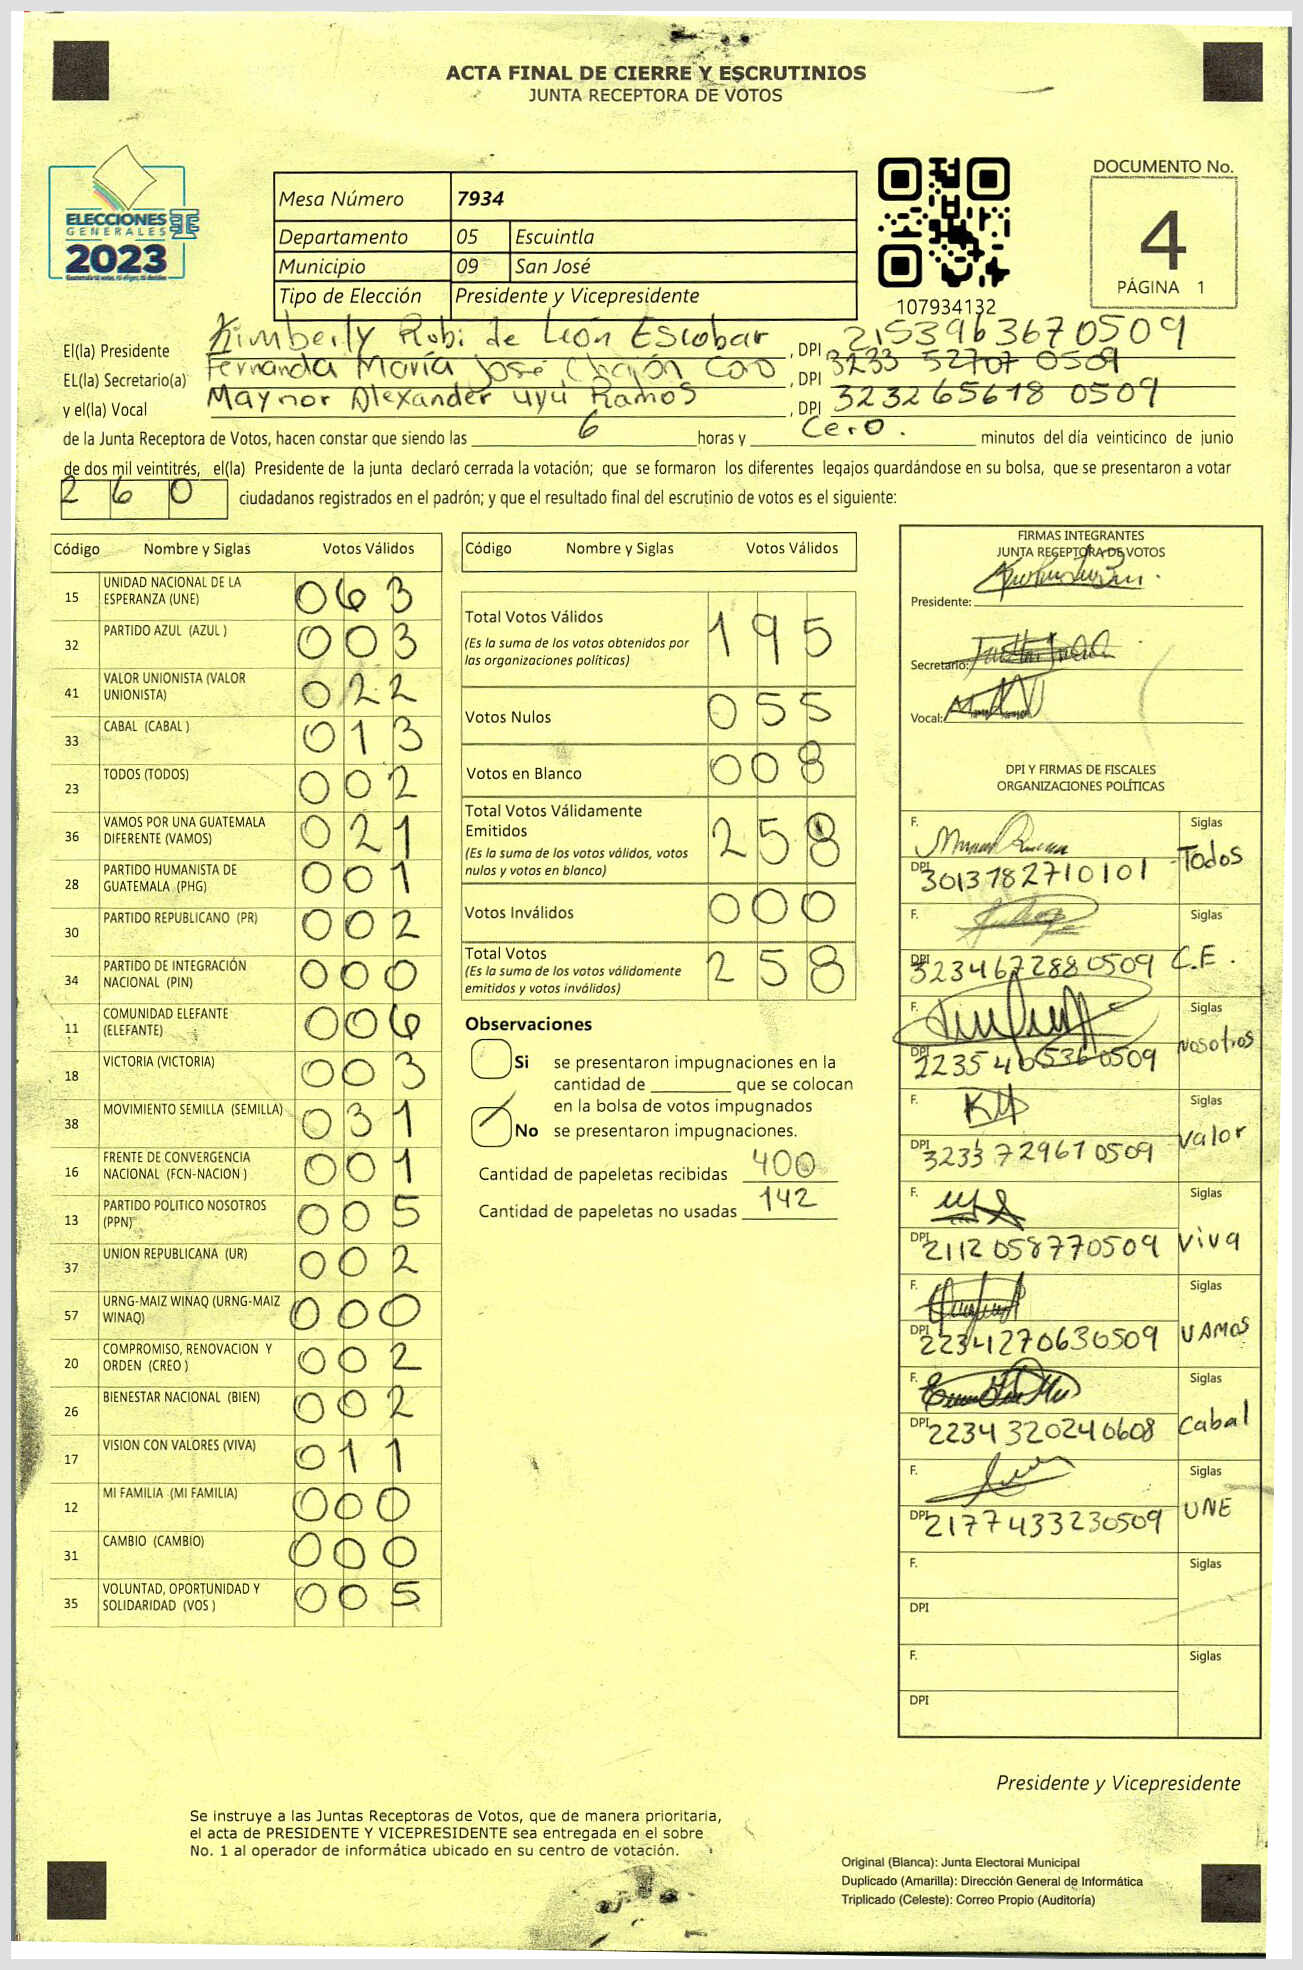 ACTA FINAL DE CIERRE Y ESCRUTINIOS
JUNTA RECEPTORA DE VOTOS
ELECCIONES
GENERALES
2023
Mesa Número 7934
Departamento 05 Escuintla
Municipio 09 San José
Tipo de Elección Presidente y Vicepresidente
107934132
DOCUMENTO No.
4
PÁGINA 1
El(la) Presidente Kimberly Rubi de León Escobar , DPI 2153963670509
EL(la) Secretario(a) Fernanda María José Chajón Coo , DPI 3233 52707 0509
y el(la) Vocal Maynor Alexander uyú Ramos , DPI 3232656180509
de la Junta Receptora de Votos, hacen constar que siendo las 6 horas y Cero. minutos del día veinticinco de junio
de dos mil veintitrés, el(la) Presidente de la junta declaró cerrada la votación; que se formaron los diferentes legajos guardándose en su bolsa, que se presentaron a votar
260 ciudadanos registrados en el padrón; y que el resultado final del escrutinio de votos es el siguiente:
Código Nombre y Siglas Votos Válidos
15 UNIDAD NACIONAL DE LA ESPERANZA (UNE) 063
32 PARTIDO AZUL (AZUL ) 003
41 VALOR UNIONISTA (VALOR UNIONISTA) 022
33 CABAL (CABAL ) 013
23 TODOS (TODOS) 002
36 VAMOS POR UNA GUATEMALA DIFERENTE (VAMOS) 021
28 PARTIDO HUMANISTA DE GUATEMALA (PHG) 001
30 PARTIDO REPUBLICANO (PR) 002
34 PARTIDO DE INTEGRACIÓN NACIONAL (PIN) 000
11 COMUNIDAD ELEFANTE (ELEFANTE) 006
18 VICTORIA (VICTORIA) 003
38 MOVIMIENTO SEMILLA (SEMILLA) 031
16 FRENTE DE CONVERGENCIA NACIONAL (FCN-NACION ) 001
13 PARTIDO POLITICO NOSOTROS (PPN) 005
37 UNION REPUBLICANA (UR) 002
57 URNG-MAIZ WINAQ (URNG-MAIZ WINAQ) 000
20 COMPROMISO, RENOVACION Y ORDEN (CREO ) 002
26 BIENESTAR NACIONAL (BIEN) 002
17 VISION CON VALORES (VIVA) 011
12 MI FAMILIA (MI FAMILIA) 000
31 CAMBIO (CAMBIO) 000
35 VOLUNTAD, OPORTUNIDAD Y SOLIDARIDAD (VOS ) 005
Código Nombre y Siglas Votos Válidos
Total Votos Válidos 195
(Es la suma de los votos obtenidos por
las organizaciones políticas)
Votos Nulos 055
Votos en Blanco 008
Total Votos Válidamente
Emitidos 258
(Es la suma de los votos válidos, votos
nulos y votos en blanco)
Votos Inválidos 000
Total Votos 258
(Es la suma de los votos válidamente
emitidos y votos inválidos)
Observaciones
Si se presentaron impugnaciones en la
cantidad de ________ que se colocan
en la bolsa de votos impugnados
No se presentaron impugnaciones.
Cantidad de papeletas recibidas 400
Cantidad de papeletas no usadas 142
FIRMAS INTEGRANTES
JUNTA RECEPTORA DE VOTOS
Presidente:
Secretario:
Vocal:
DPI Y FIRMAS DE FISCALES
ORGANIZACIONES POLÍTICAS
F. Siglas
DPI 3013782710101 Todos
F. Siglas
DPI 3234672880509 C.E.
F. Siglas
DPI 2235405360509 Nosotros
F. Siglas
DPI 3233729610509 Valor
F. Siglas
DPI 2112058770509 Viva
F. Siglas
DPI 2234270630509 VAMOS
F. Siglas
DPI 2234320240608 Cabal
F. Siglas
DPI 2177433230509 UNE
F. Siglas
DPI
F. Siglas
DPI
Presidente y Vicepresidente
Se instruye a las Juntas Receptoras de Votos, que de manera prioritaria,
el acta de PRESIDENTE Y VICEPRESIDENTE sea entregada en el sobre
No. 1 al operador de informática ubicado en su centro de votación.
Original (Blanca): Junta Electoral Municipal
Duplicado (Amarilla): Dirección General de Informática
Triplicado (Celeste): Correo Propio (Auditoría)